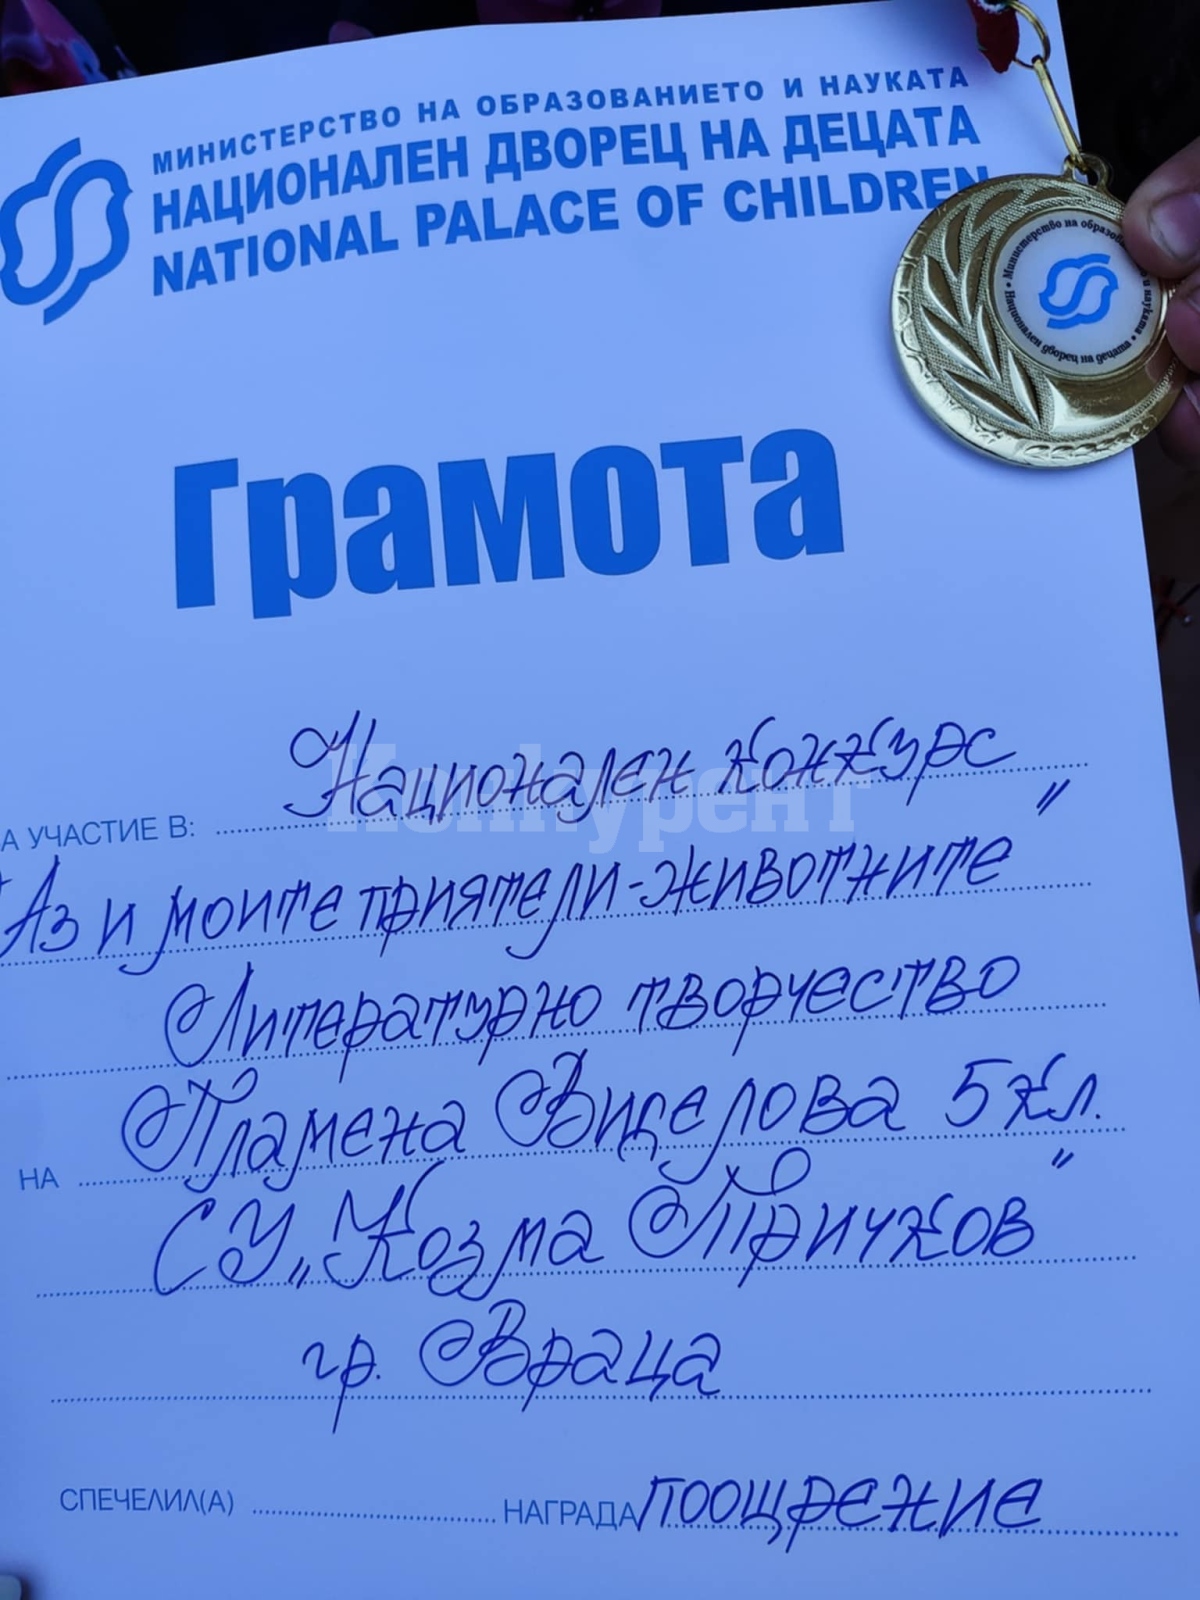 МИНИСТЕРСТВО НА ОБРАЗОВАНИЕТО И НАУКАТА
НАЦИОНАЛЕН ДВОРЕЦ НА ДЕЦАТА
NATIONAL PALACE OF CHILDREN
Министерство на образов и науката • Национален дворец на децата •
Грамота
А УЧАСТИЕ В: Национален конкурс
"Аз и моите приятели-животните"
Литературно творчество
НА Пламена Виделова 5 кл.
СУ „Козма Тричков"
гр. Враца
СПЕЧЕЛИЛ(А) НАГРАДА поощрение
Конкурент